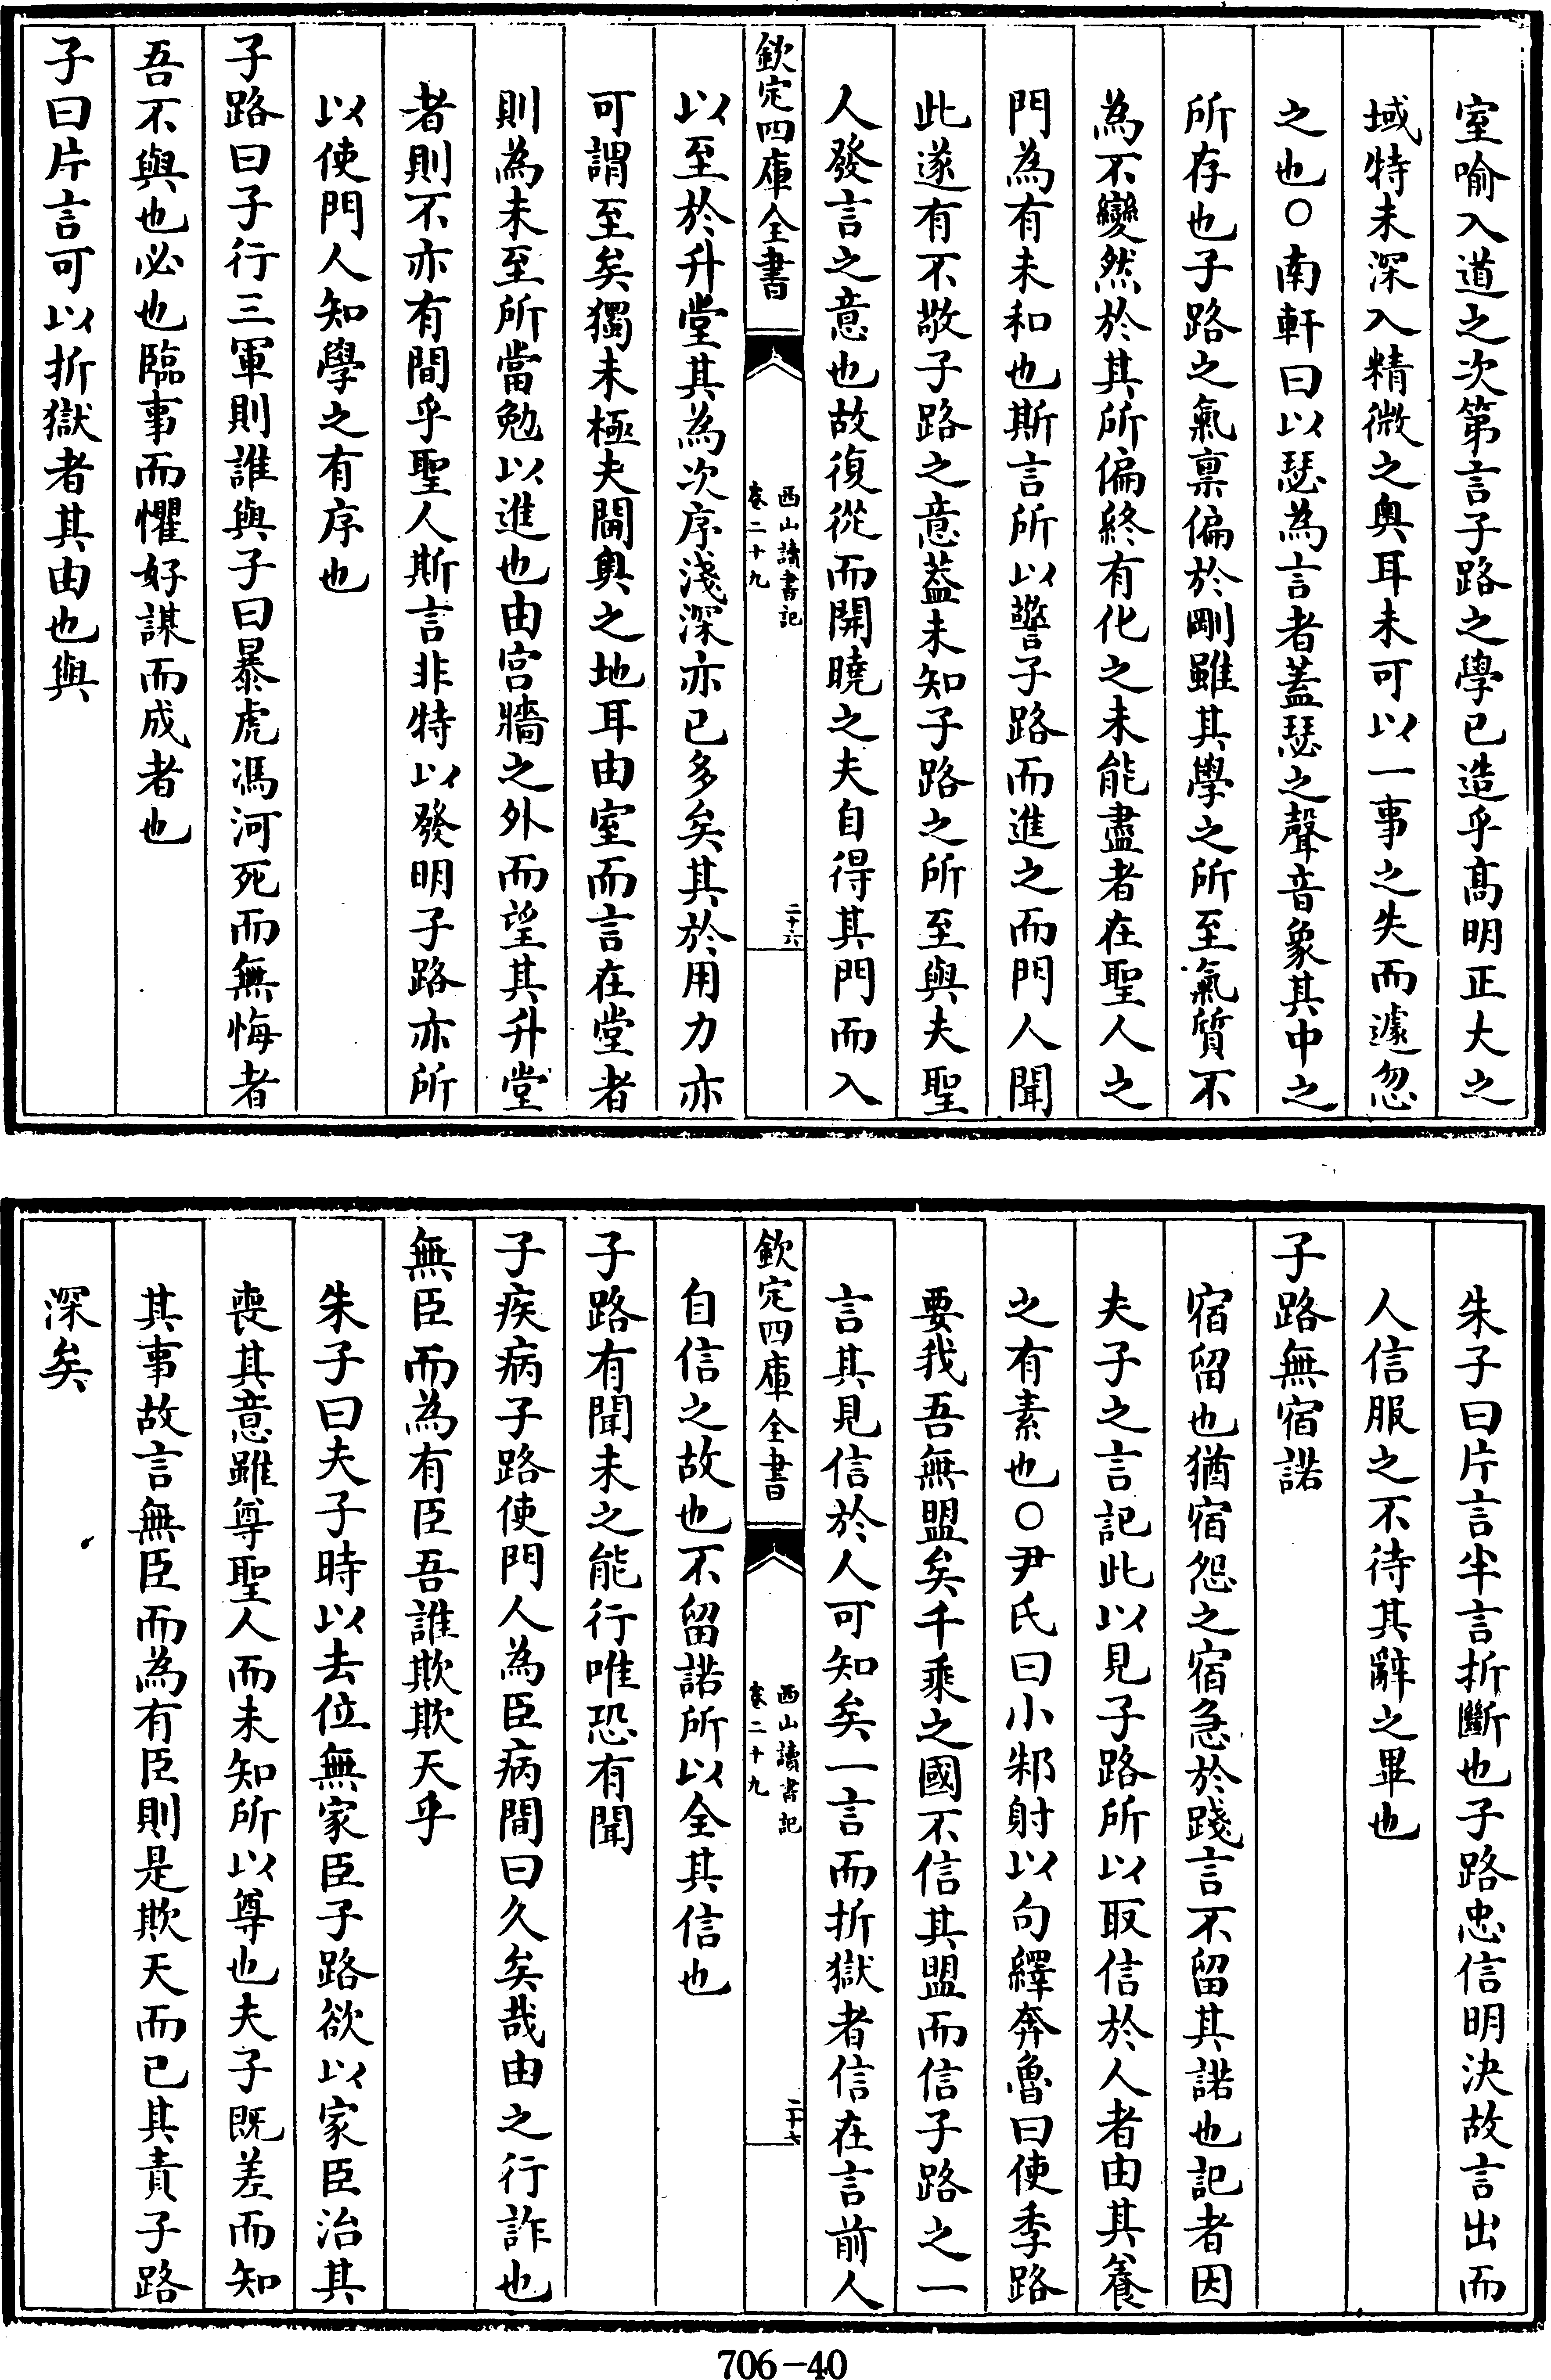 室喻入道之次第言子路之學已造乎髙明正大之
域特未深入精微之奥耳未可以一事之失而遽忽
之也○南軒曰以瑟為言者蓋瑟之聲音象其中之
所存也子路之氣稟偏於剛雖其學之所至氣質不
為不變然於其所偏終有化之未能盡者在聖人之
門為有未和也斯言所以警子路而進之而門人聞
此遂有不敬子路之意蓋未知子路之所至與夫聖
人發言之意也故復從而開曉之夫自得其門而入
欽定四庫全書
西山讀書記
卷二十九
二十六
以至於升堂其為次序淺深亦已多矣其於用力亦
可謂至矣獨未極夫閫奥之地耳由室而言在堂者
則為未至所當勉以進也由宫牆之外而望其升堂
者則不亦有間乎聖人斯言非特以發明子路亦所
以使門人知學之有序也
子路曰子行三軍則誰與子曰暴虎馮河死而無悔者
吾不與也必也臨事而懼好謀而成者也
子曰片言可以折獄者其由也與
朱子曰片言半言折斷也子路忠信明決故言出而
人信服之不待其辭之畢也
子路無宿諾
宿留也猶宿怨之宿急於踐言不留其諾也記者因
夫子之言記此以見子路所以取信於人者由其養
之有素也○尹氏曰小邾射以句繹奔魯曰使季路
要我吾無盟矣千乘之國不信其盟而信子路之一
言其見信於人可知矣一言而折獄者信在言前人
欽定四庫全書
西山讀書記
卷二十九
二十七
自信之故也不留諾所以全其信也
子路有聞未之能行唯恐有聞
子疾病子路使門人為臣病間曰久矣哉由之行詐也
無臣而為有臣吾誰欺欺天乎
朱子曰夫子時以去位無家臣子路欲以家臣治其
喪其意雖尊聖人而未知所以尊也夫子既差而知
其事故言無臣而為有臣則是欺天而已其責子路
深矣
706-40